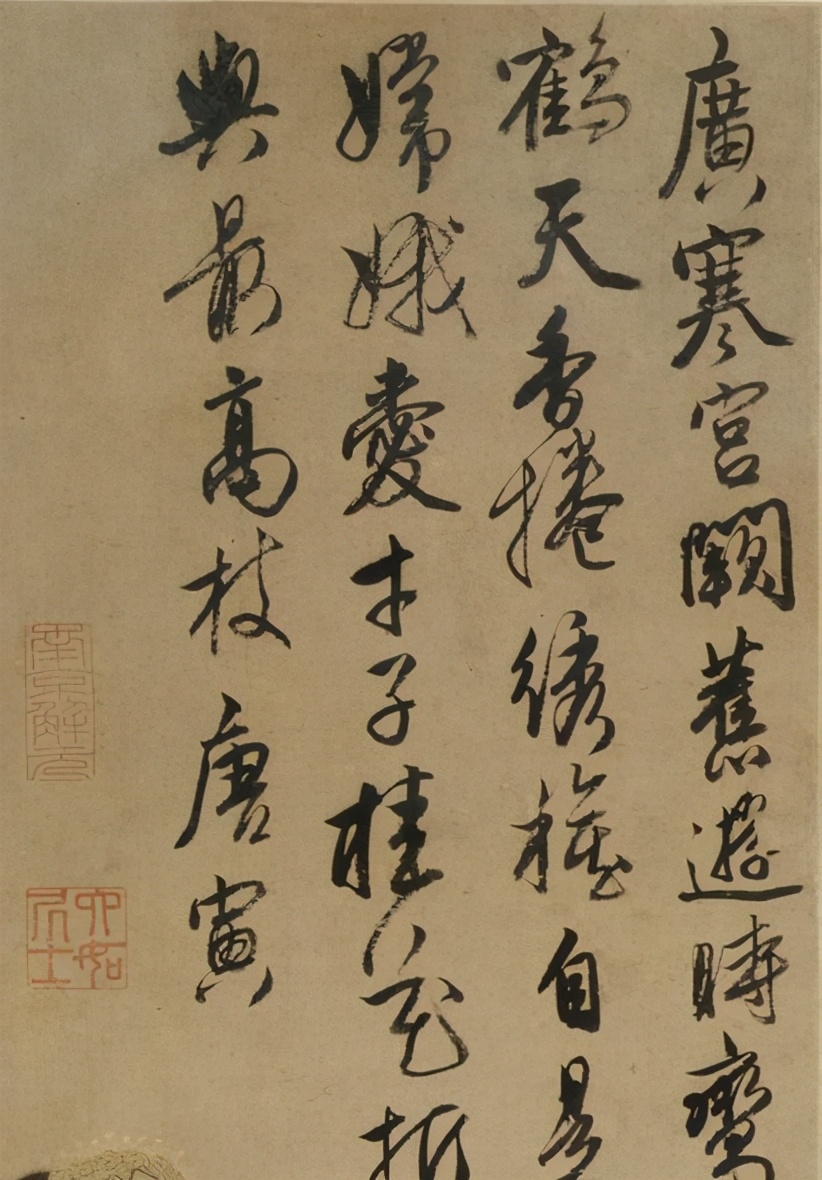 廣寒宮闕舊遊時鸞
鶴天香捲繡旗自是
嫦娥愛才子桂花折
與最高枝 唐寅
南京解元
六如居士